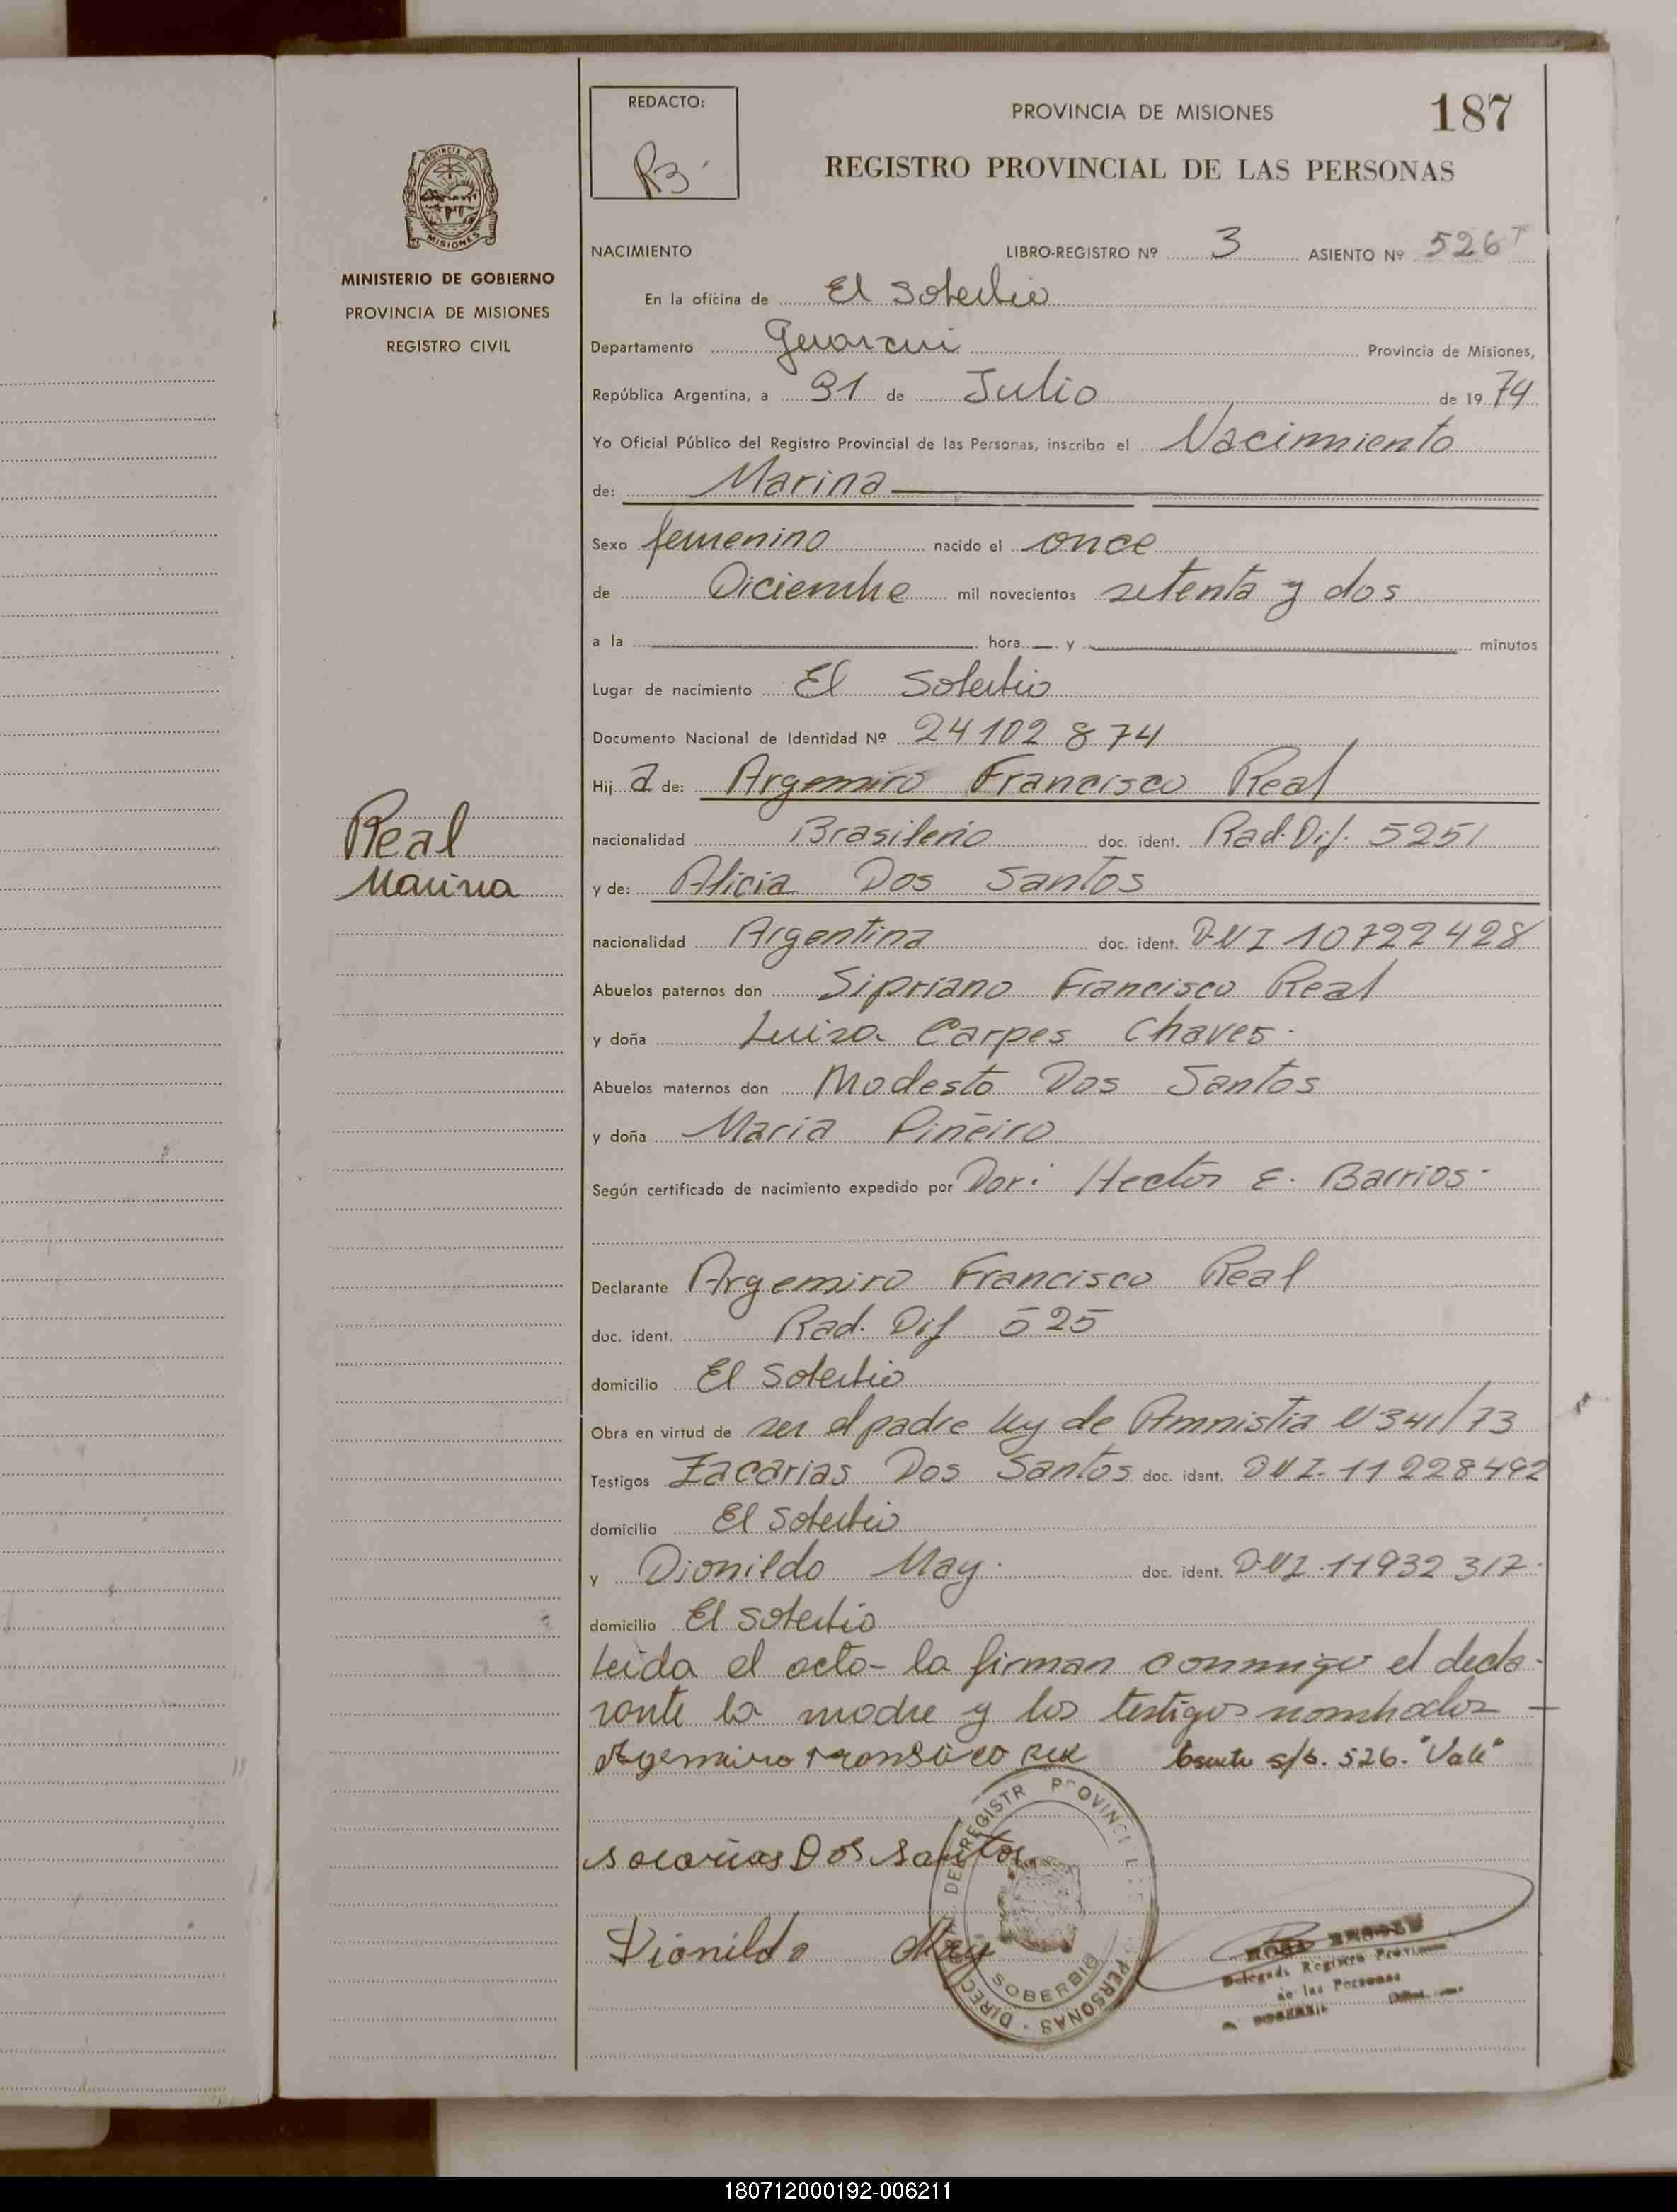 REDACTO:
PROVINCIA DE MISIONES
187
REGISTRO PROVINCIAL DE LAS PERSONAS
PROVINCIA DE
MISIONES
MINISTERIO DE GOBIERNO
PROVINCIA DE MISIONES
REGISTRO CIVIL
NACIMIENTO LIBRO-REGISTRO Nº 3 ASIENTO Nº 526
En la oficina de El Soberbio
Departamento Guarani Provincia de Misiones,
República Argentina, a 31 de Julio de 19 74
Yo Oficial Público del Registro Provincial de las Personas, inscribo el Nacimiento
de: Marina
Sexo femenino nacido el once
de Diciembre mil novecientos setenta y dos
a la hora y minutos
Lugar de nacimiento El Soberbio
Documento Nacional de Identidad Nº 24102874
Hij a de: Argemiro Francisco Real
Real
Marina
nacionalidad Brasileño doc. ident. Rad. Dif. 5251
y de: Alicia Dos Santos
nacionalidad Argentina doc. ident. D.N.I 10722428
Abuelos paternos don Sipriano Francisco Real
y doña Luiza Carpes Chaves.
Abuelos maternos don Modesto Dos Santos
y doña Maria Piñeiro
Según certificado de nacimiento expedido por Dor: Hector E. Barrios-
Declarante Argemiro Francisco Real
doc. ident. Rad. Dif 525
domicilio El Soberbio
Obra en virtud de ser el padre ley de Amnistia N 341/73
Testigos Zacarias Dos Santos doc. ident. D N I. 11228492
domicilio El Soberbio
y Dionildo May. doc. ident. D.N.I. 11932317.
domicilio El Soberbio
Leida el acta- la firman conmigo el decla-
rante la madre y los testigos nombrados -
s/b. 526. "Vale"
Socorias Dos Santos
Dionildo May
SOBERBIO
PERSONAS - DIREC
Delegada Registro Provincial
de las Personas
180712000192-006211